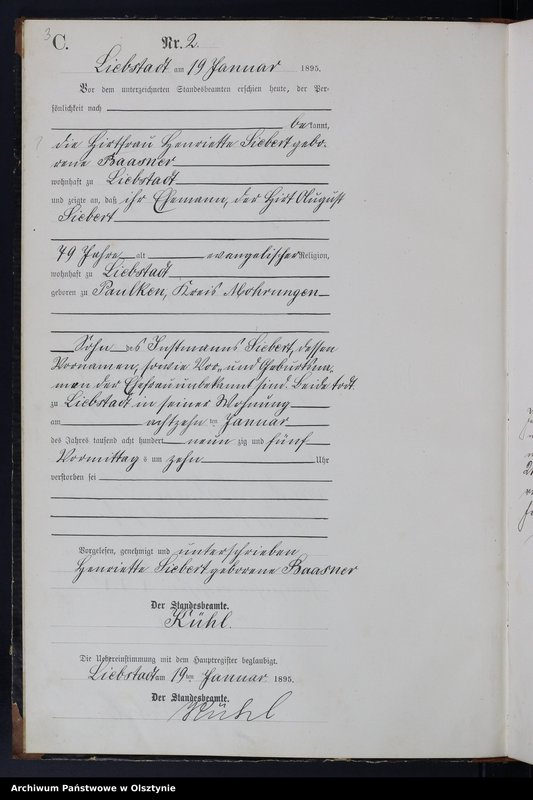 3
C.
Nr. 2.
Liebstadt am 19 Januar 1895.
Vor dem unterzeichneten Standesbeamten erschien heute, der Per-
sönlichkeit nach
bekannt,
die Hirtfrau Henriette Siebert gebo-
rene Baasner
wohnhaft zu Liebstadt
und zeigte an, daß ihr Ehemann, der Hirt August
Siebert
79 Jahre alt evangelischer Religion,
wohnhaft zu Liebstadt
geboren zu Paulken, Kreis Mohrungen
Sohn des Instmanns Siebert, dessen
Vornamen, sowie Vor- und Geburtsna-
men der Ehefrau unbekannt sind. Beide todt
zu Liebstadt in seiner Wohnung
am achtzehn ten Januar
des Jahres tausend acht hundert neun zig und fünf
Vormittags um zehn Uhr
verstorben sei
Vorgelesen, genehmigt und unterschrieben
Henriette Siebert geborene Baasner
Der Standesbeamte.
Kühl.
Die Uebereinstimmung mit dem Hauptregister beglaubigt.
Liebstadt am 19 ten Januar 1895.
Der Standesbeamte.
Kühl
Archiwum Państwowe w Olsztynie